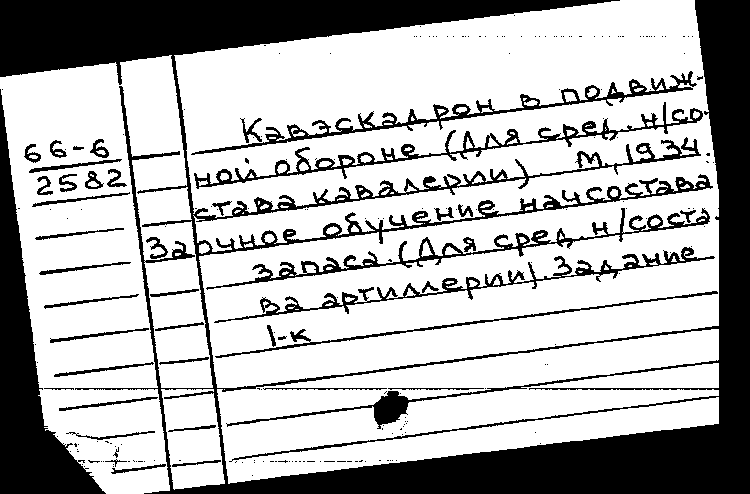 66-6
2582
Кавэскадрон в подвиж-
ной обороне (Для сред. н/со-
става кавалерии) М., 1934.
Заочное обучение начсостава
запаса. (Для сред. н/соста-
ва артиллерии). Задание
1-к